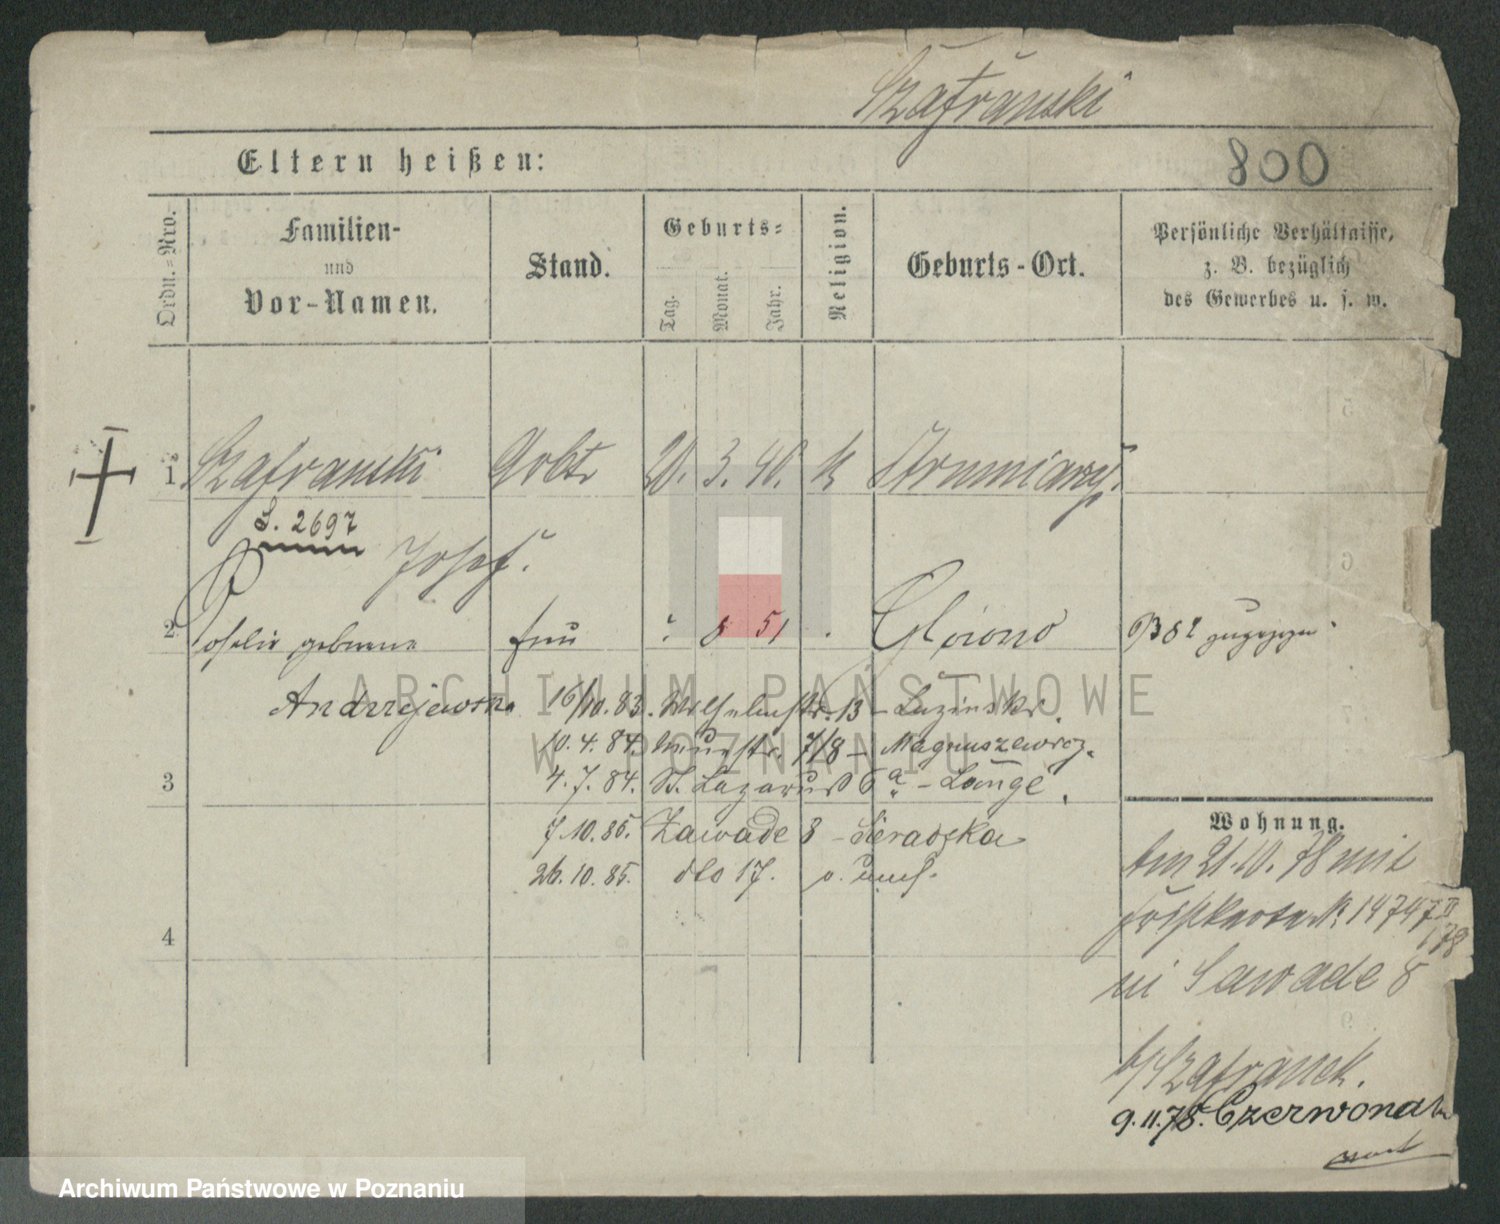 Szafranski
Eltern heißen:
800
Ordn.-Nro.
Familien-
und
Vor-Namen.
Stand.
Geburts-
Tag.
Monat.
Jahr.
Religion.
Geburts-Ort.
Persönliche Verhältnisse,
z. B. bezüglich
des Gewerbes u. s. w.
1 Szafranski Arbtr 20. 3. 40. k
S. 2697
Josef.
2 geborene Frau 8 51 82 zugezogen
Andrzejewska 16/10.83. Wilhelmstr. 13 - Luzinski.
10.4.84. 7/8 - Magnuszewicz.
3 4.7.84. St. Lazarus 6a - Lange.
7.10.85. Zawade 8 - Sieradzka
26.10.85. dto 17.
4
Wohnung.
Am 21.10.78 mit
No 14747 II
/78
Zawade 8
b/Szafranek.
9.11.78. Czerwonak
ARCHIWUM PAŃSTWOWE
W POZNANIU
Archiwum Państwowe w Poznaniu